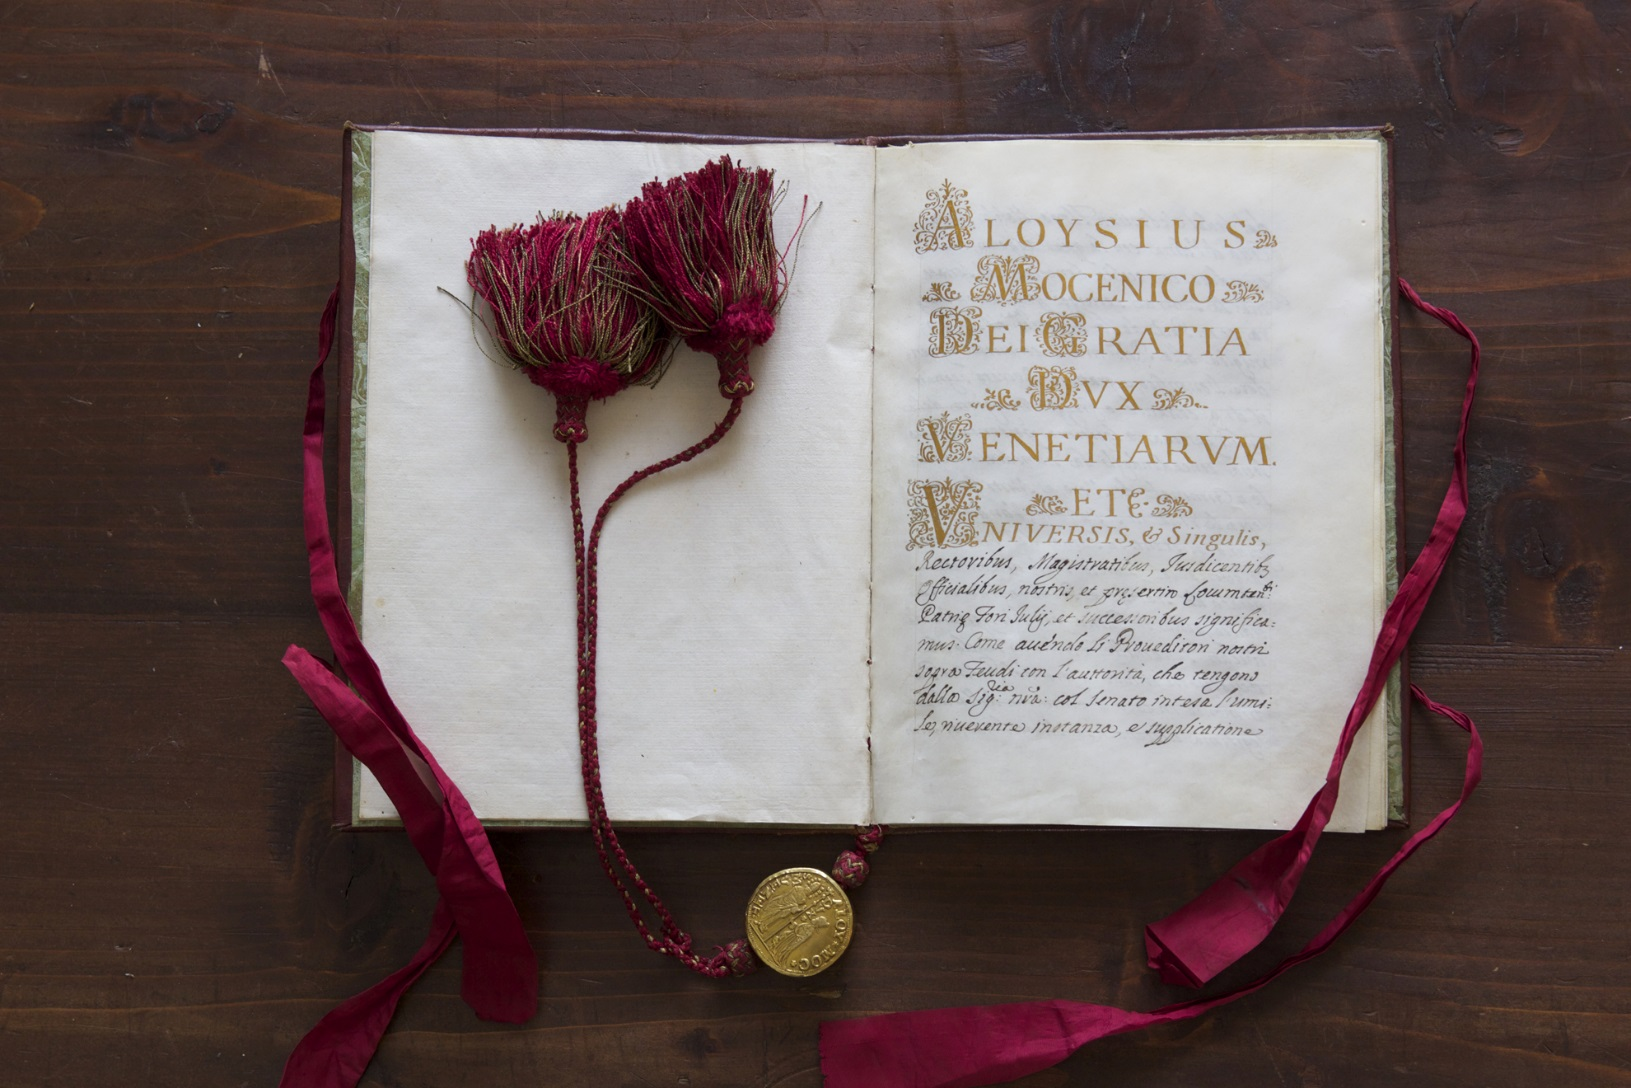 ALOYSIUS
MOCENICO
DEI GRATIA
DVX
VENETIARVM.
ETC
VNIVERSIS, & Singulis,
Rectoribus, Magistratibus, Jusdicentibz
Officialibus, nostris, et pręsertim Locumten:ti
Patrię Fori Julij, et successoribus significa=
mus. Come auendo li Proueditori nostri
sopra Feudi con l'auttorità, che tengono
dalla Sig:ria nra: col Senato intesa l'umi=
le, riuerente instanza, e supplicatione
ALOY·MOC